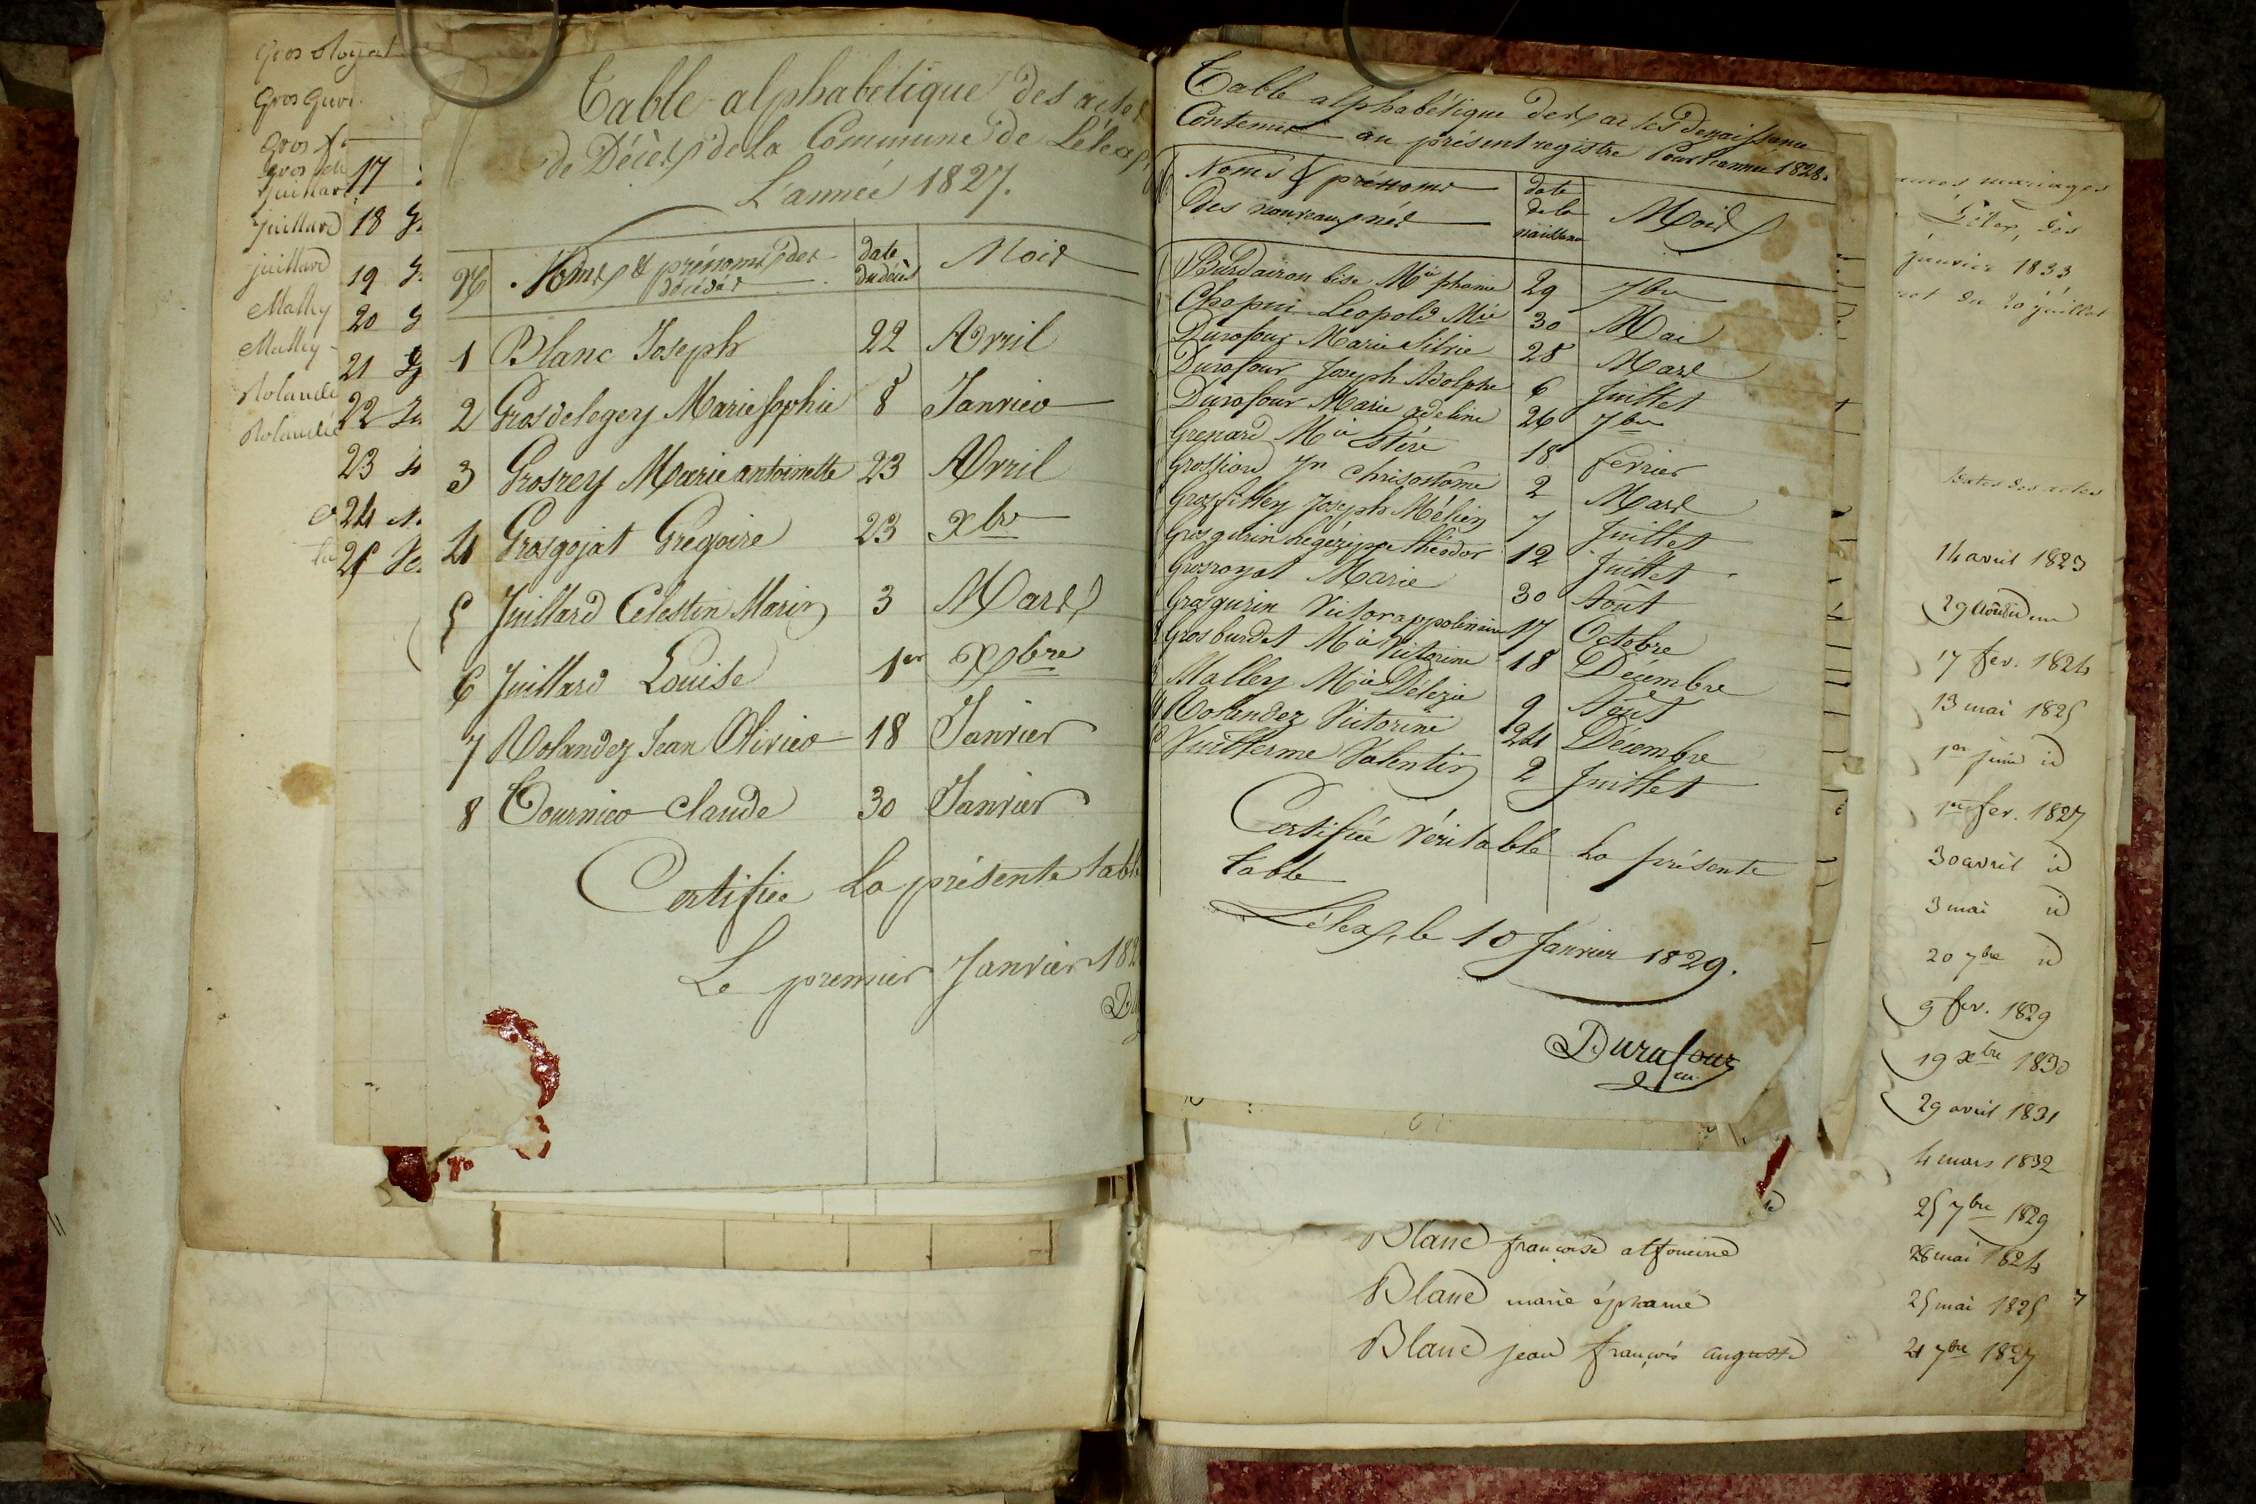 Gros
Gros Guri
Gros
juillard
juillard
Malley
Malley
Rolandé
17
18
19
20
21
22
23
24
25
Table alphabétique des actes
de Décès de la Commune de Lélex
L'année 1827.
N° Noms & prénoms des Décédés date du décès Mois
1 Blanc Joseph 22 Avril
2 Grosdelegey Marie Sophie 8 Janvier
3 Grosrey Marie antoinette 23 Avril
4 Grosgojat Grégoire 23 Xbre
5 Juillard Célestin Marin 3 Mars
6 Juillard Louise 1er Xbre
7 Rolandez Jean Olivier 18 Janvier
8 Tournier Claude 30 Janvier
Certifiée La présente table
Le premier Janvier 182
Table alphabétique des actes de naissance
Contenus au présent registre Pour l'année 1828.
Noms & prénoms des nouveaux nés date de la naissance Mois
Burdairon bise Mie phanie 29 7bre
Chapuis Leopold Mie 30 Mai
Durafour Marie Silvie 28 Mars
Durafour Joseph Adolphe 6 Juillet
Durafour Marie adeline 26 7bre
Grenard Mie Estère 18 février
Grossiord Jn Chrisostôme 2 Mars
Grosfilley Joseph Mélien 7 Juillet
Grosgurin hégézippe théodor 12 Juillet
Grosroyat Marie 30 Août
Grosgurin Victor appolinaire 17 Octobre
Grosburdet Mie Victorine 18 Décembre
Malley Mie Délezie 9 Août
Rolandez Victorine 24 Décembre
Vuillerme Valentin 2 Juillet
Certifiée Véritable La présente
table
Lélex, le 10 Janvier 1829.
Durafour
mariages
janvier 1833
du 20 juillet
Dates des actes
14 avril 1823
29 août
17 fev. 1824
13 mai 1825
1er juin id
1er fev. 1827
30 avril id
3 mai id
20 7bre id
9 fev. 1829
19 xbre 1830
29 avril 1831
4 mars 1832
25 7bre 1829
Blanc françoise alfonsine 28 mai 1824
Blanc marie éphanie 25 mai 1825
Blanc jean françois auguste 21 7bre 1827